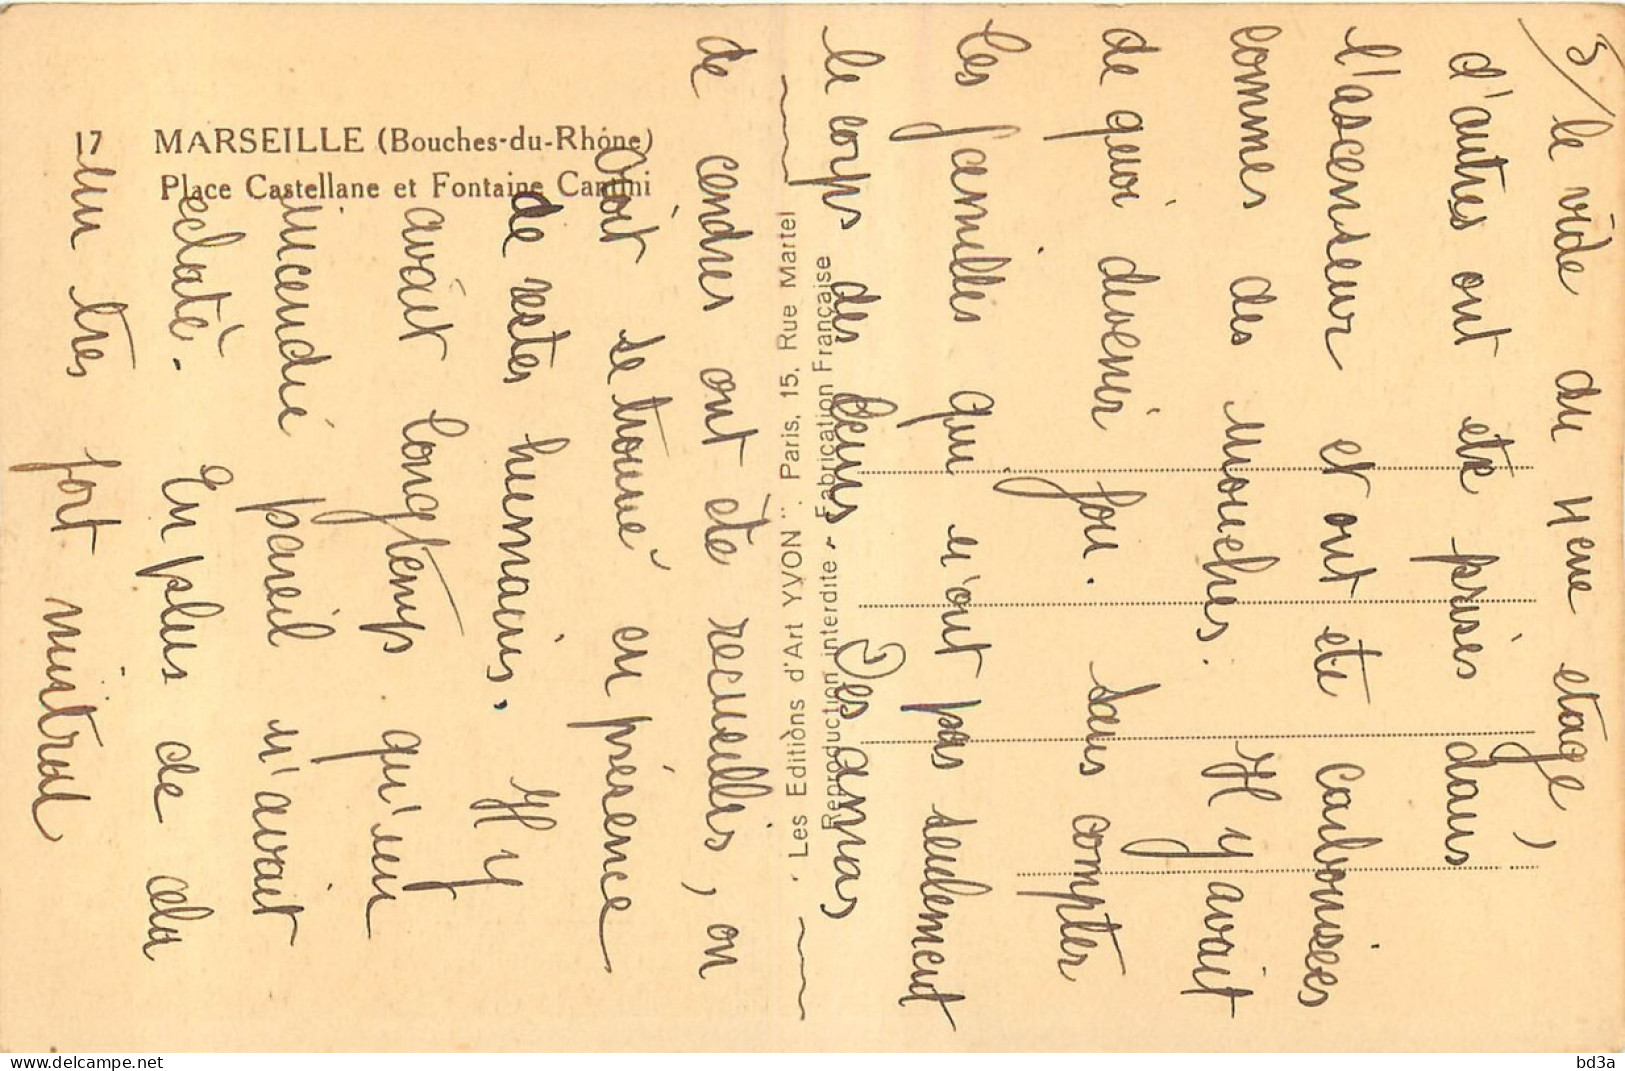 17 MARSEILLE (Bouches-du-Rhône)
Place Castellane et Fontaine Cantini
" Les Editions d'Art YVON " . Paris, 15, Rue Martel
Reproduction interdite - Fabrication Française
3/ le vide du 4ème etage,
d'autres ont ete prises dans
l'ascenseur et ont ete carbonisées
comme des mouches. Il y avait
de quoi devenir fou. Sans compter
les familles qui n'ont pas seulement
le corps des leurs. Des amas
de cendres ont été recueillis, on
doit se trouvé en présence
de restes humains. Il y
avait longtemps qu'un
incendie pareil n'avait
eclaté. En plus de cela
un tres fort mistral
bd3a